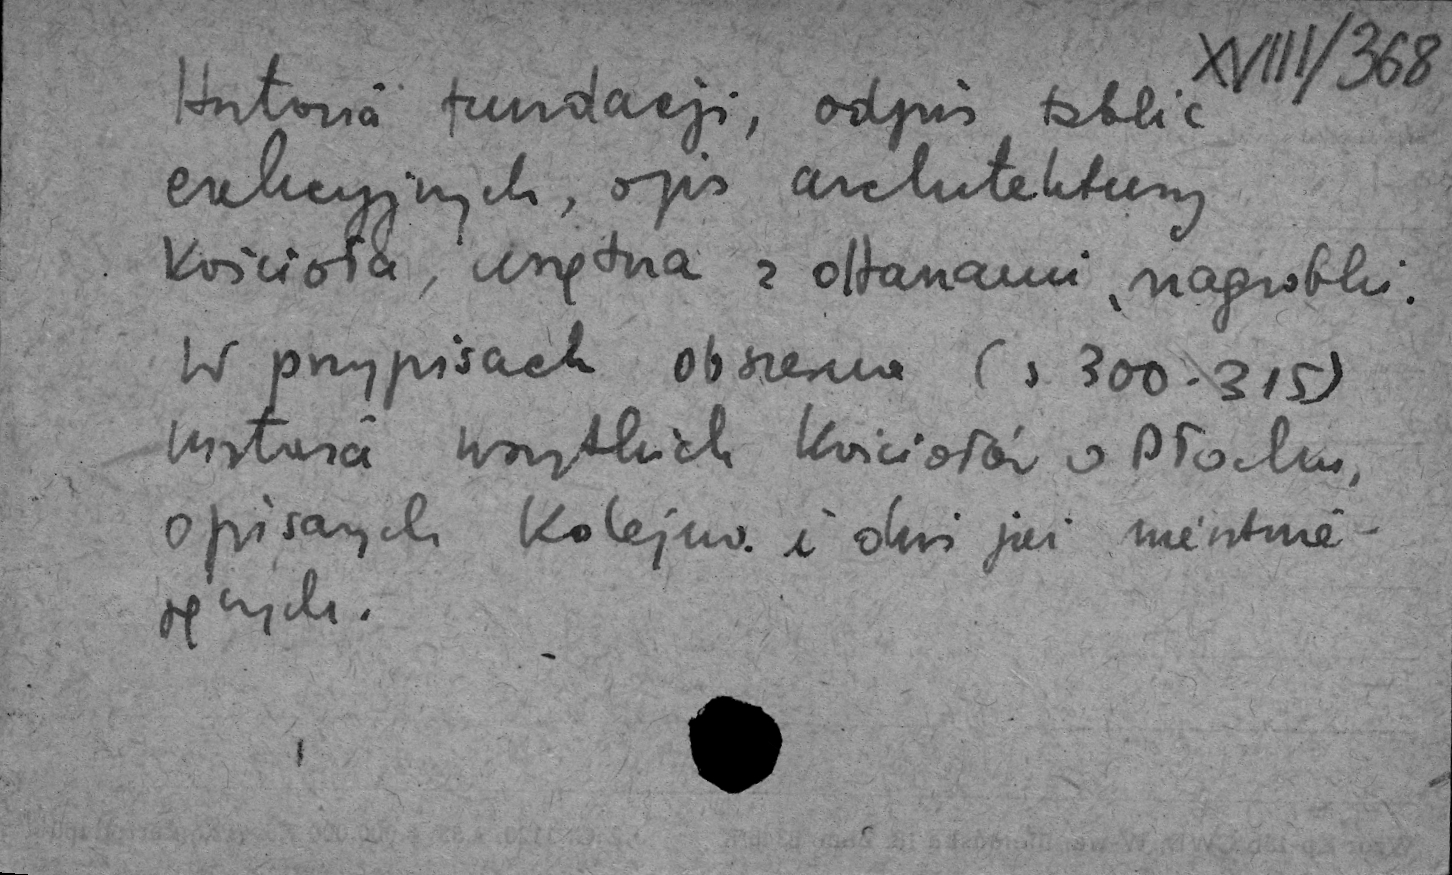 XVIII/368
Historia fundacji, odpis tablic
erekcyjnych, opis architektury
Kościoła, wnętrza z ołtarzami, nagrobki.
W przypisach obszerna (s 300-315)
historia wszystkich Kościołów w Płocku,
opisanych kolejno i dziś już nieistnie-
jących.